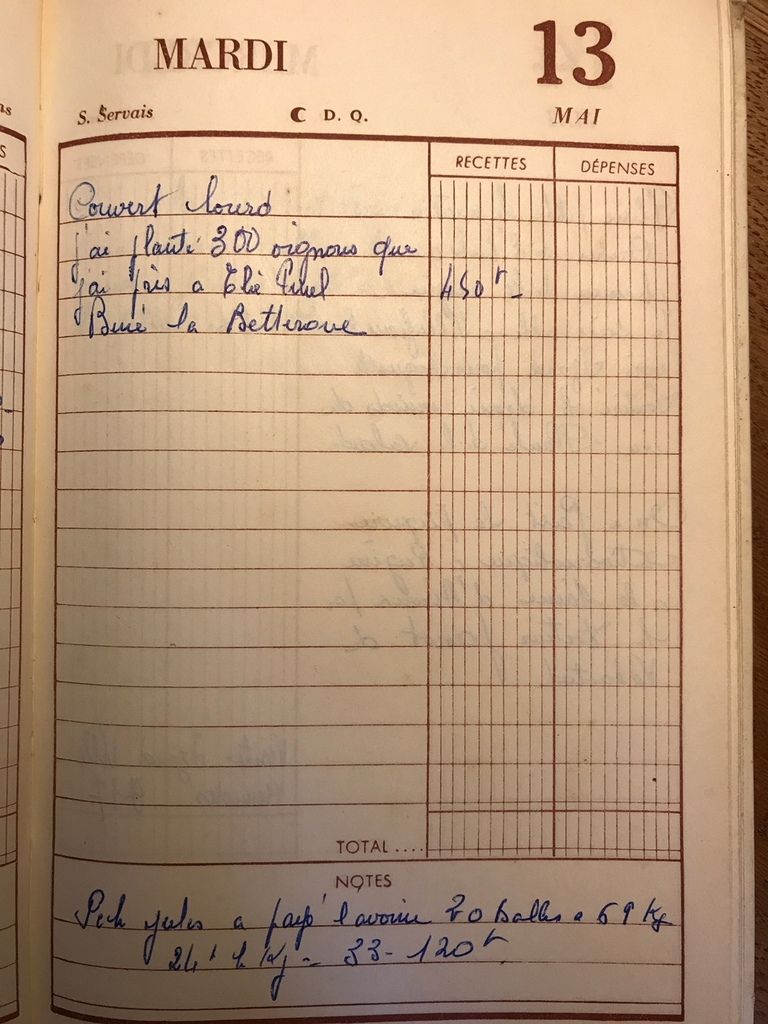 MARDI 13
S. Servais D. Q. MAI
RECETTES DÉPENSES
Couvert lourd
j'ai planté 300 oignons que
j'ai pris a Elie 450 f -
Biné la Betterave
TOTAL ....
NOTES
jules a payé l'avoine 20 Balles a 69 Kg
24 f le Kg = 33-120 f